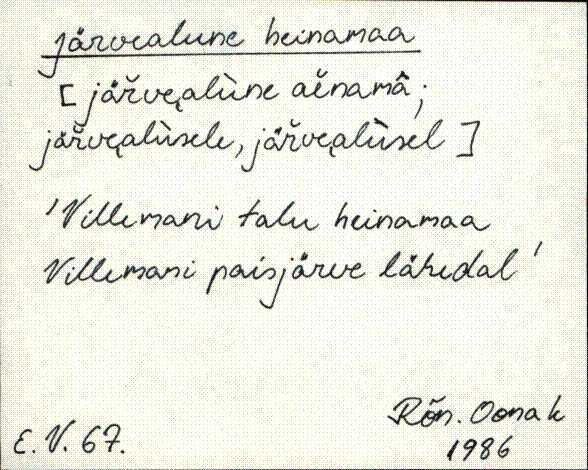 järvealune heinamaa
[järvealùne aěnamâ;
järvealùsele, järvealùsel]
'Villemani talu heinamaa
Villemani paisjärve lähedal'
Rõn. Oona k
E.V. 67. 1986